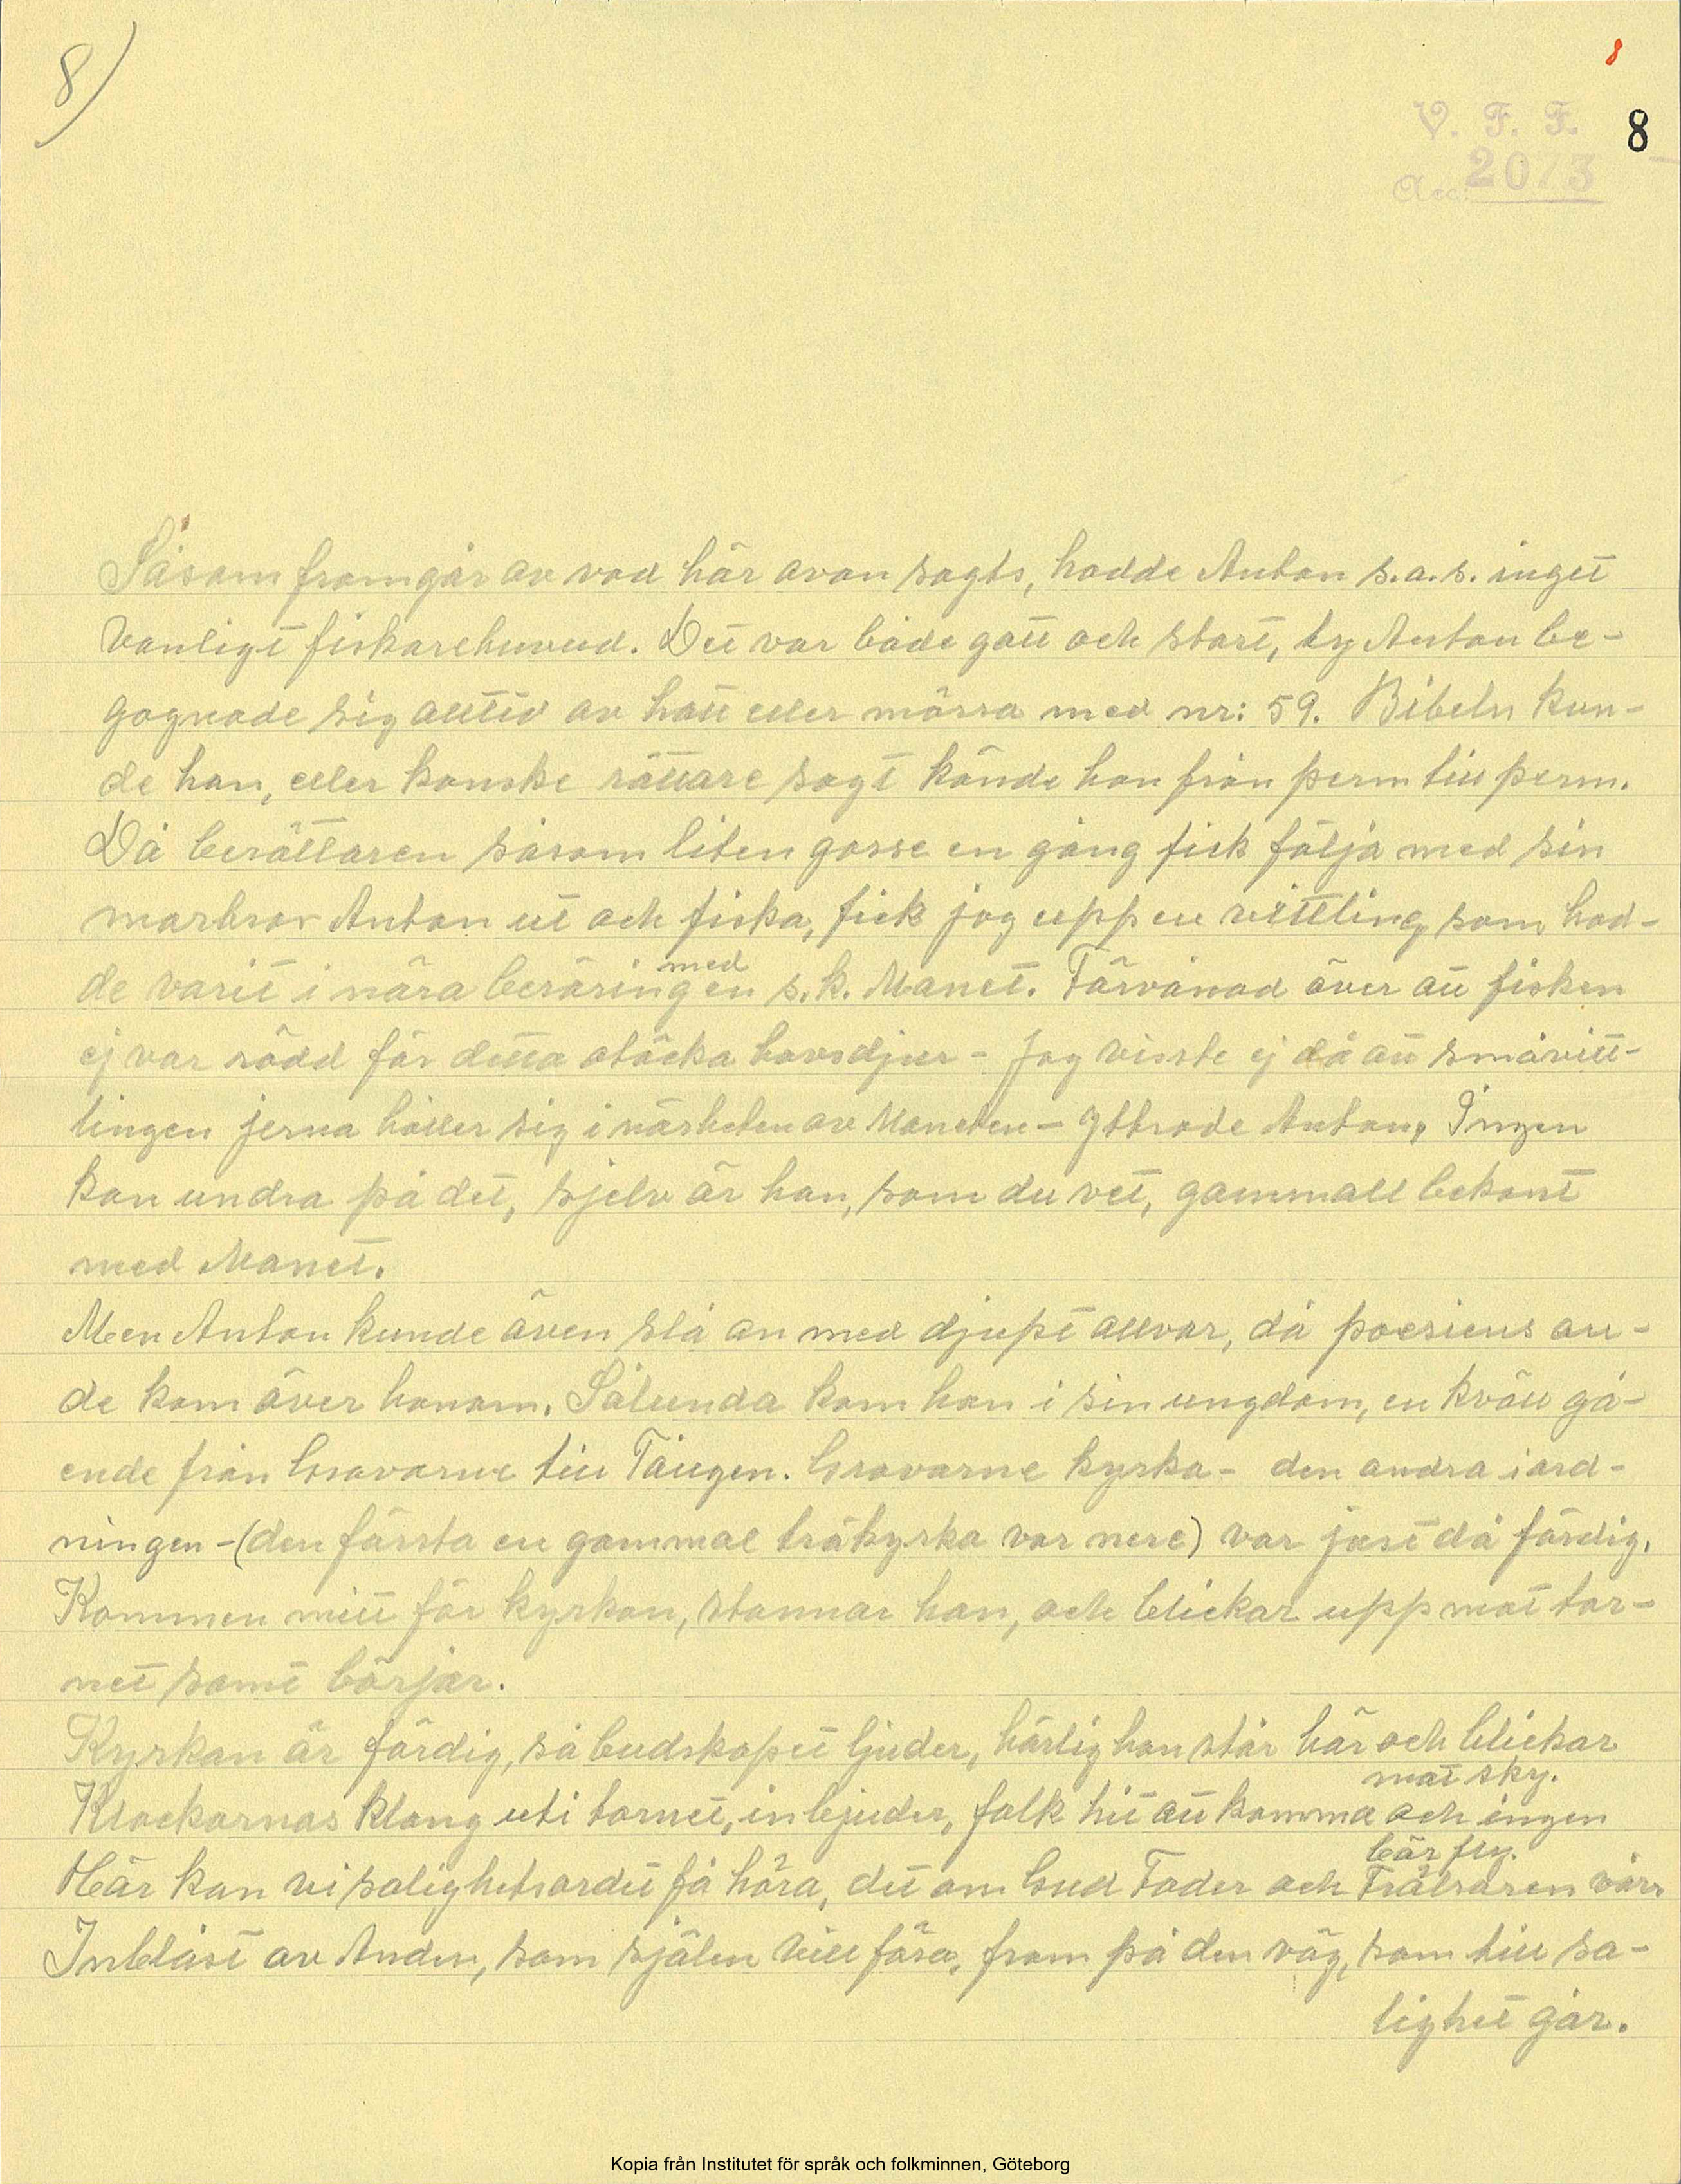 8)
8
V. F. F. 8
Acc. 2073
Såsom framgår av vad här ovan sagts, hadde Anton s.a.s. inget
vanligt fiskarehuvud. Det var både gott och stort, ty Anton be-
gagnade sig alltid av hatt eller mössa med nr: 59. Bibeln kun-
de han, eller kanske rättare sagt kände han från perm till perm.
Då berättaren såsom liten gosse en gång fick följa med sin
morbror Anton ut och fiska, fick jag upp en vittling som had-
de varit i nära beröring med en s.k. Manet. Förvånad över att fisken
ej var rädd för detta otäcka havsdjur - Jag visste ej då att småvitt-
lingen jerna håller sig i närheten av Maneten - yttrade Anton, Ingen
kan undra på det, sjelv är han, som du vet, gammall bekant
med Manet.
Men Anton kunde även slå an med djupt allvar, då poesiens an-
de kom över honom. Sålunda kom han i sin ungdom, en kväll gå-
ende från Gravarne till Tången. Gravarne kyrka - den andra i ord-
ningen - (den första en gammal träkyrka var nere) var just då färdig.
Kommen mitt för kyrkan, stannar han, och blickar upp mot tor-
net samt börjar.
Kyrkan är färdig, så budskapet ljuder, härlig hon står här och blickar
mot sky.
Klockornas klang uti tornet, inbjuder, folk hit att komma och ingen
bör fly.
Här kan vi salighetsordet få höra, det om Gud Fader och Frälsaren vår,
Inblåst av Anden, som själen vill föra, fram på den väg, som till sa-
lighet går.
Kopia från Institutet för språk och folkminnen, Göteborg